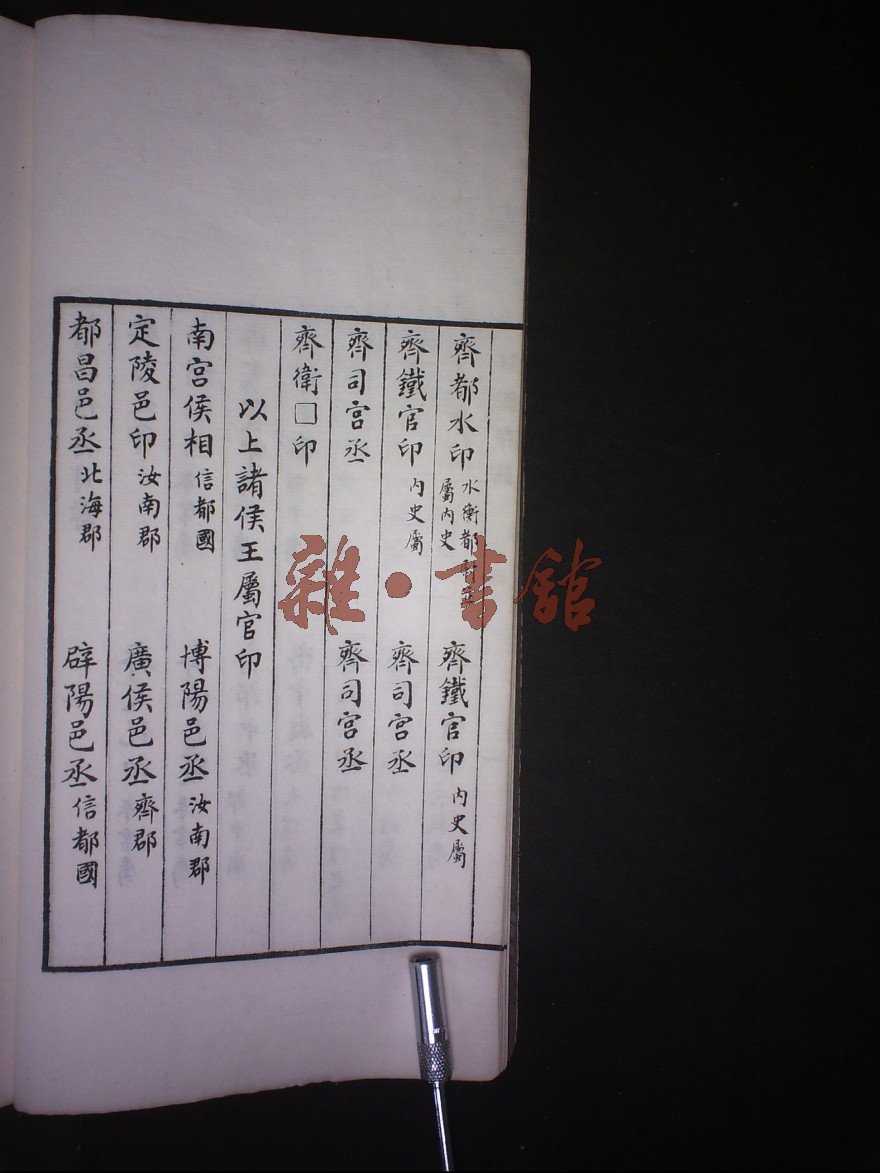 齊都水印 水衡都
屬內史 齊鐵官印 內史屬
齊鐵官印 內史屬 齊司宮丞
齊司宮丞 齊司宮丞
齊衛□印
以上諸侯王屬官印
南宮侯相 信都國 博陽邑丞 汝南郡
定陵邑印 汝南郡 廣侯邑丞 齊郡
都昌邑丞 北海郡 辟陽邑丞 信都國
雜·書館